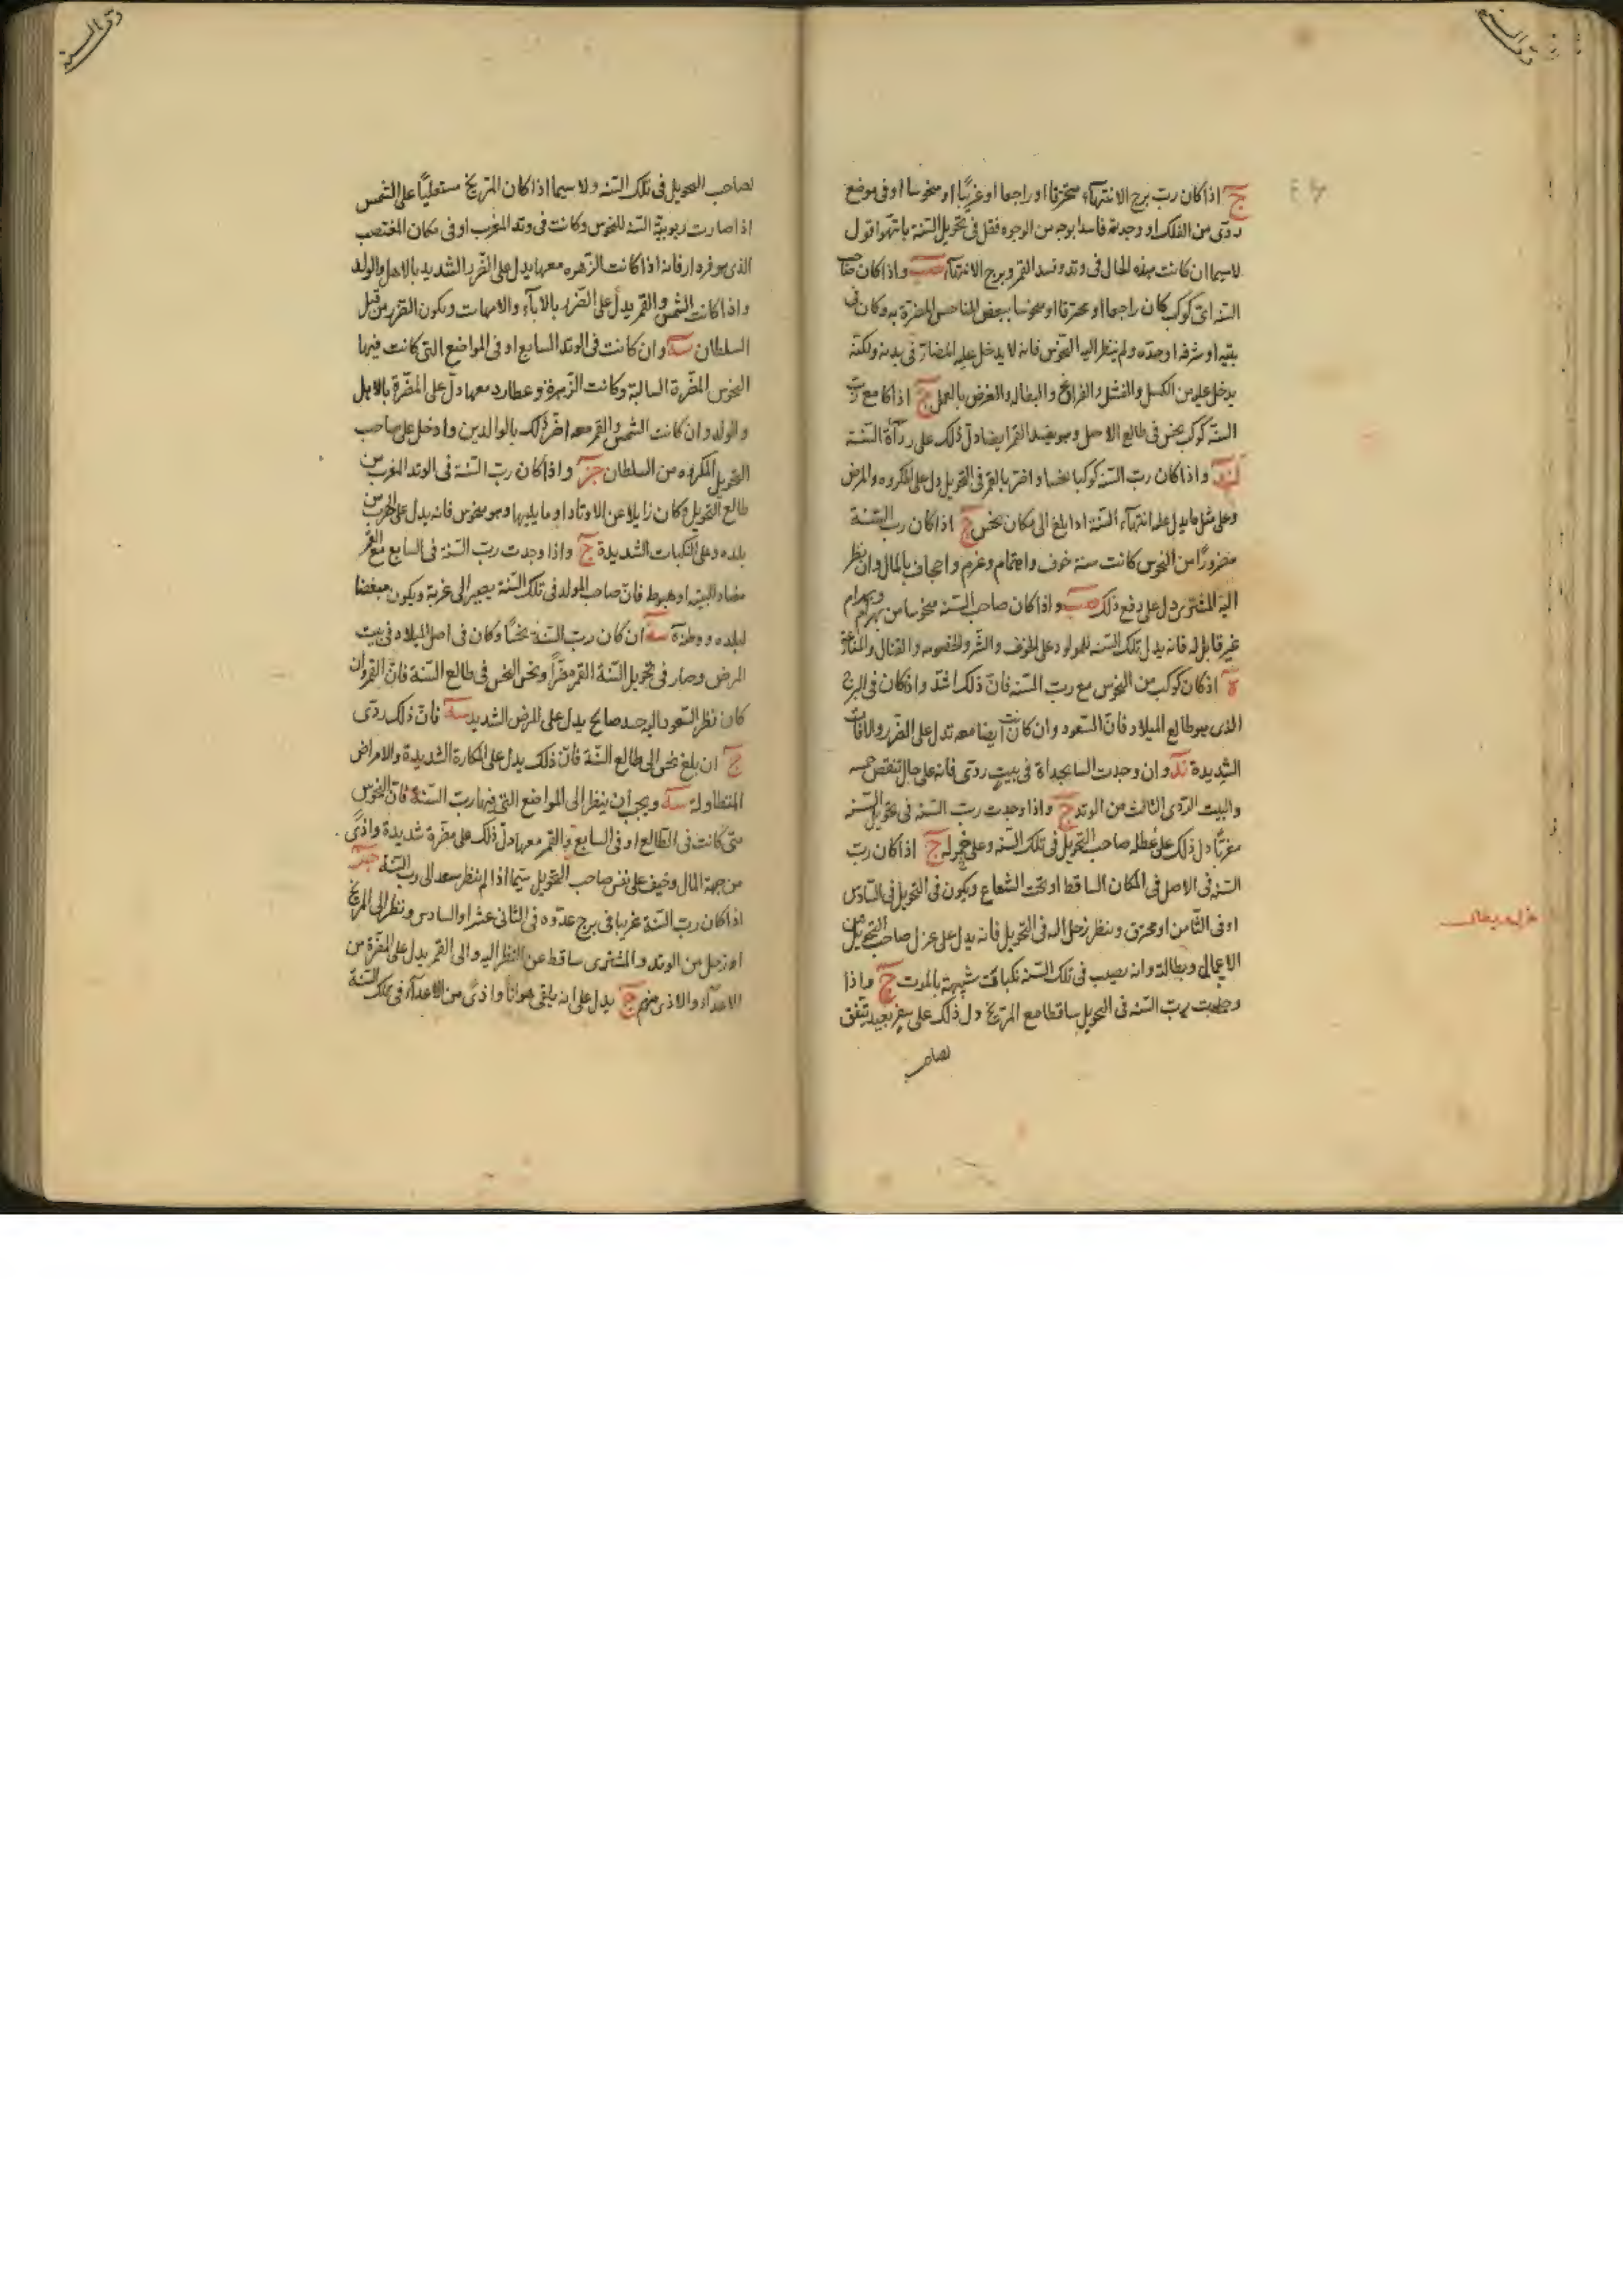 ردى السنه
ج اذا كان رب برج الانتهاء محترقا او راجعا او غريبا او منحوسا او فى موضع
ردى من الفلك او وجدته فاسدا بوجه من الوجوه فقل فى تحويل السنة باسوا قول
لا سيما ان كانت هذه الحال فى وتد وفسد القمر وبرج الانتهاء واذا كان صاحب
السنه اى كوكب كان راجعا او محترقا او منحوسا ببعض المناحس المضرة به وكان فى
بيته او شرفه او حده ولم ينظر اليه النحوس فانه لا يدخل عليه المضار فى بدنه ولكنه
يدخل عليه من الكسل والفشل والفراغ والبطاله والغرض بالعمل ج اذا كا مع رب
السنه كوكب نحس فى طالع الاصل وهو يفسد القمر ايضا دل ذلك على رداءة السنة
واذا كان رب السنه كوكبا نحسا واضر بالقمر فى التحويل دل على المكروه والمرض
وعلى مثل ما يدل عليه انتهاء السنة اذا بلغ الى مكان نحس ج اذا كان رب السنة
مضرورا من النحوس كانت سنة خوف واغتمام وغرم واجحاف بالمال وان نظر
اليه المشترى دل على دفع ذلك واذا كان صاحب السنه منحوسا من بهرام وبهرام
غير قابل له فانه يدل تلك السنه للمولود على الخوف والشر والخصومه والقتال والمنازعة
اذ كان كوكب من النحوس مع رب السنه فان ذلك اشد واذ كان فى البرج
الذى هو طالع الميلاد فان السعود وان كانت ايضا معه تدل على الضرر والافات
الشديدة وان وجدت السابجداة فى بيت ردى فانه على حال تنقص
والبيت الردى الثالث من الوتد ج واذا وجدت رب السنه فى تحويل السنه
مغربا دل ذلك على عطله صاحب التحويل فى تلك السنه وعلى خموله ج اذا كان رب
السنه فى الاصل فى المكان الساقط او تحت الشعاع ويكون فى التحويل فى السادس
او فى الثامن او محترق وينظر زحل اليه فى التحويل فانه يدل على عزل صاحب التحويل من
الاعمال وبطالة وانه يصيب فى تلك السنه نكبات شبيهة بالموت ج واذا
وجدت رب السنه فى التحويل ساقطا مع المريخ دل ذلك على سفر بعيد يتفق
لصاحب
ردى السنه
لصاحب التحويل فى تلك السنه ولا سيما اذا كان المريخ مستعليا على الشمس
اذا صارت ربوبية السنه للنحوس وكانت فى وتد المغرب او فى مكان المغتصب
الذى هو فره ارفانه اذا كانت الزهره معها يدل على الضرر الشديد بالاهل والولد
واذا كانت الشمس والقمر يدل على الضرر بالاباء والامهات ويكون الضرر من قبل
السلطان وان كانت فى الوتد السابع او فى المواضع التى كانت فيها
النحوس المضرة السالبة وكانت الزهرة وعطارد معها دل على المضرة بالاهل
والولد وان كانت الشمس والقمر معه اضر ذلك بالوالدين وادخل على صاحب
التحويل المكروه من السلطان واذا كان رب السنة فى الوتد المغرب من
طالع التحويل وكان زايلا عن الاوتاد او ما يليها وهو منحوس فانه يدل على الهرب من
بلده وعلى النكبات الشديدة ج واذا وجدت رب السنة فى السابع مع القمر
مضاد البيته او هبوط فان صاحب المولد فى تلك السنة يصير الى غربة ويكون مبغضا
لبلده ووطنه ان كان رب السنة نحسا وكان فى اصل الميلاد فى بيت
المرض وصار فى تحويل السنة القمر مضرا ونحس النحس فى طالع السنة فان القمر وان
كان نظر السعود اليه جد صالح يدل على المرض الشديد فان ذلك ردى
ج ان بلغ نحس الى طالع السنة فان ذلك يدل على المكارة الشديدة والامراض
المتطاولة ويجب ان ينظر الى المواضع التى فيها رب السنة فان النحوس
متى كانت فى الطالع او فى السابع والقمر معها دل ذلك على مضرة شديدة واذى
من جهة المال وخيف على نفس صاحب التحويل سيما اذا لم ينظر سعد الى رب السنة
اذا كان رب السنة غريبا فى برج عدوه فى الثانى عشر او السادس ونظر الى المريخ
او زحل من الوتد والمشترى ساقط عن النظر اليه والى القمر يدل على المضرة من
الاعداء والاذى منهم ج يدل على انه يلقى هوانا واذى من الاعداء فى تلك السنة